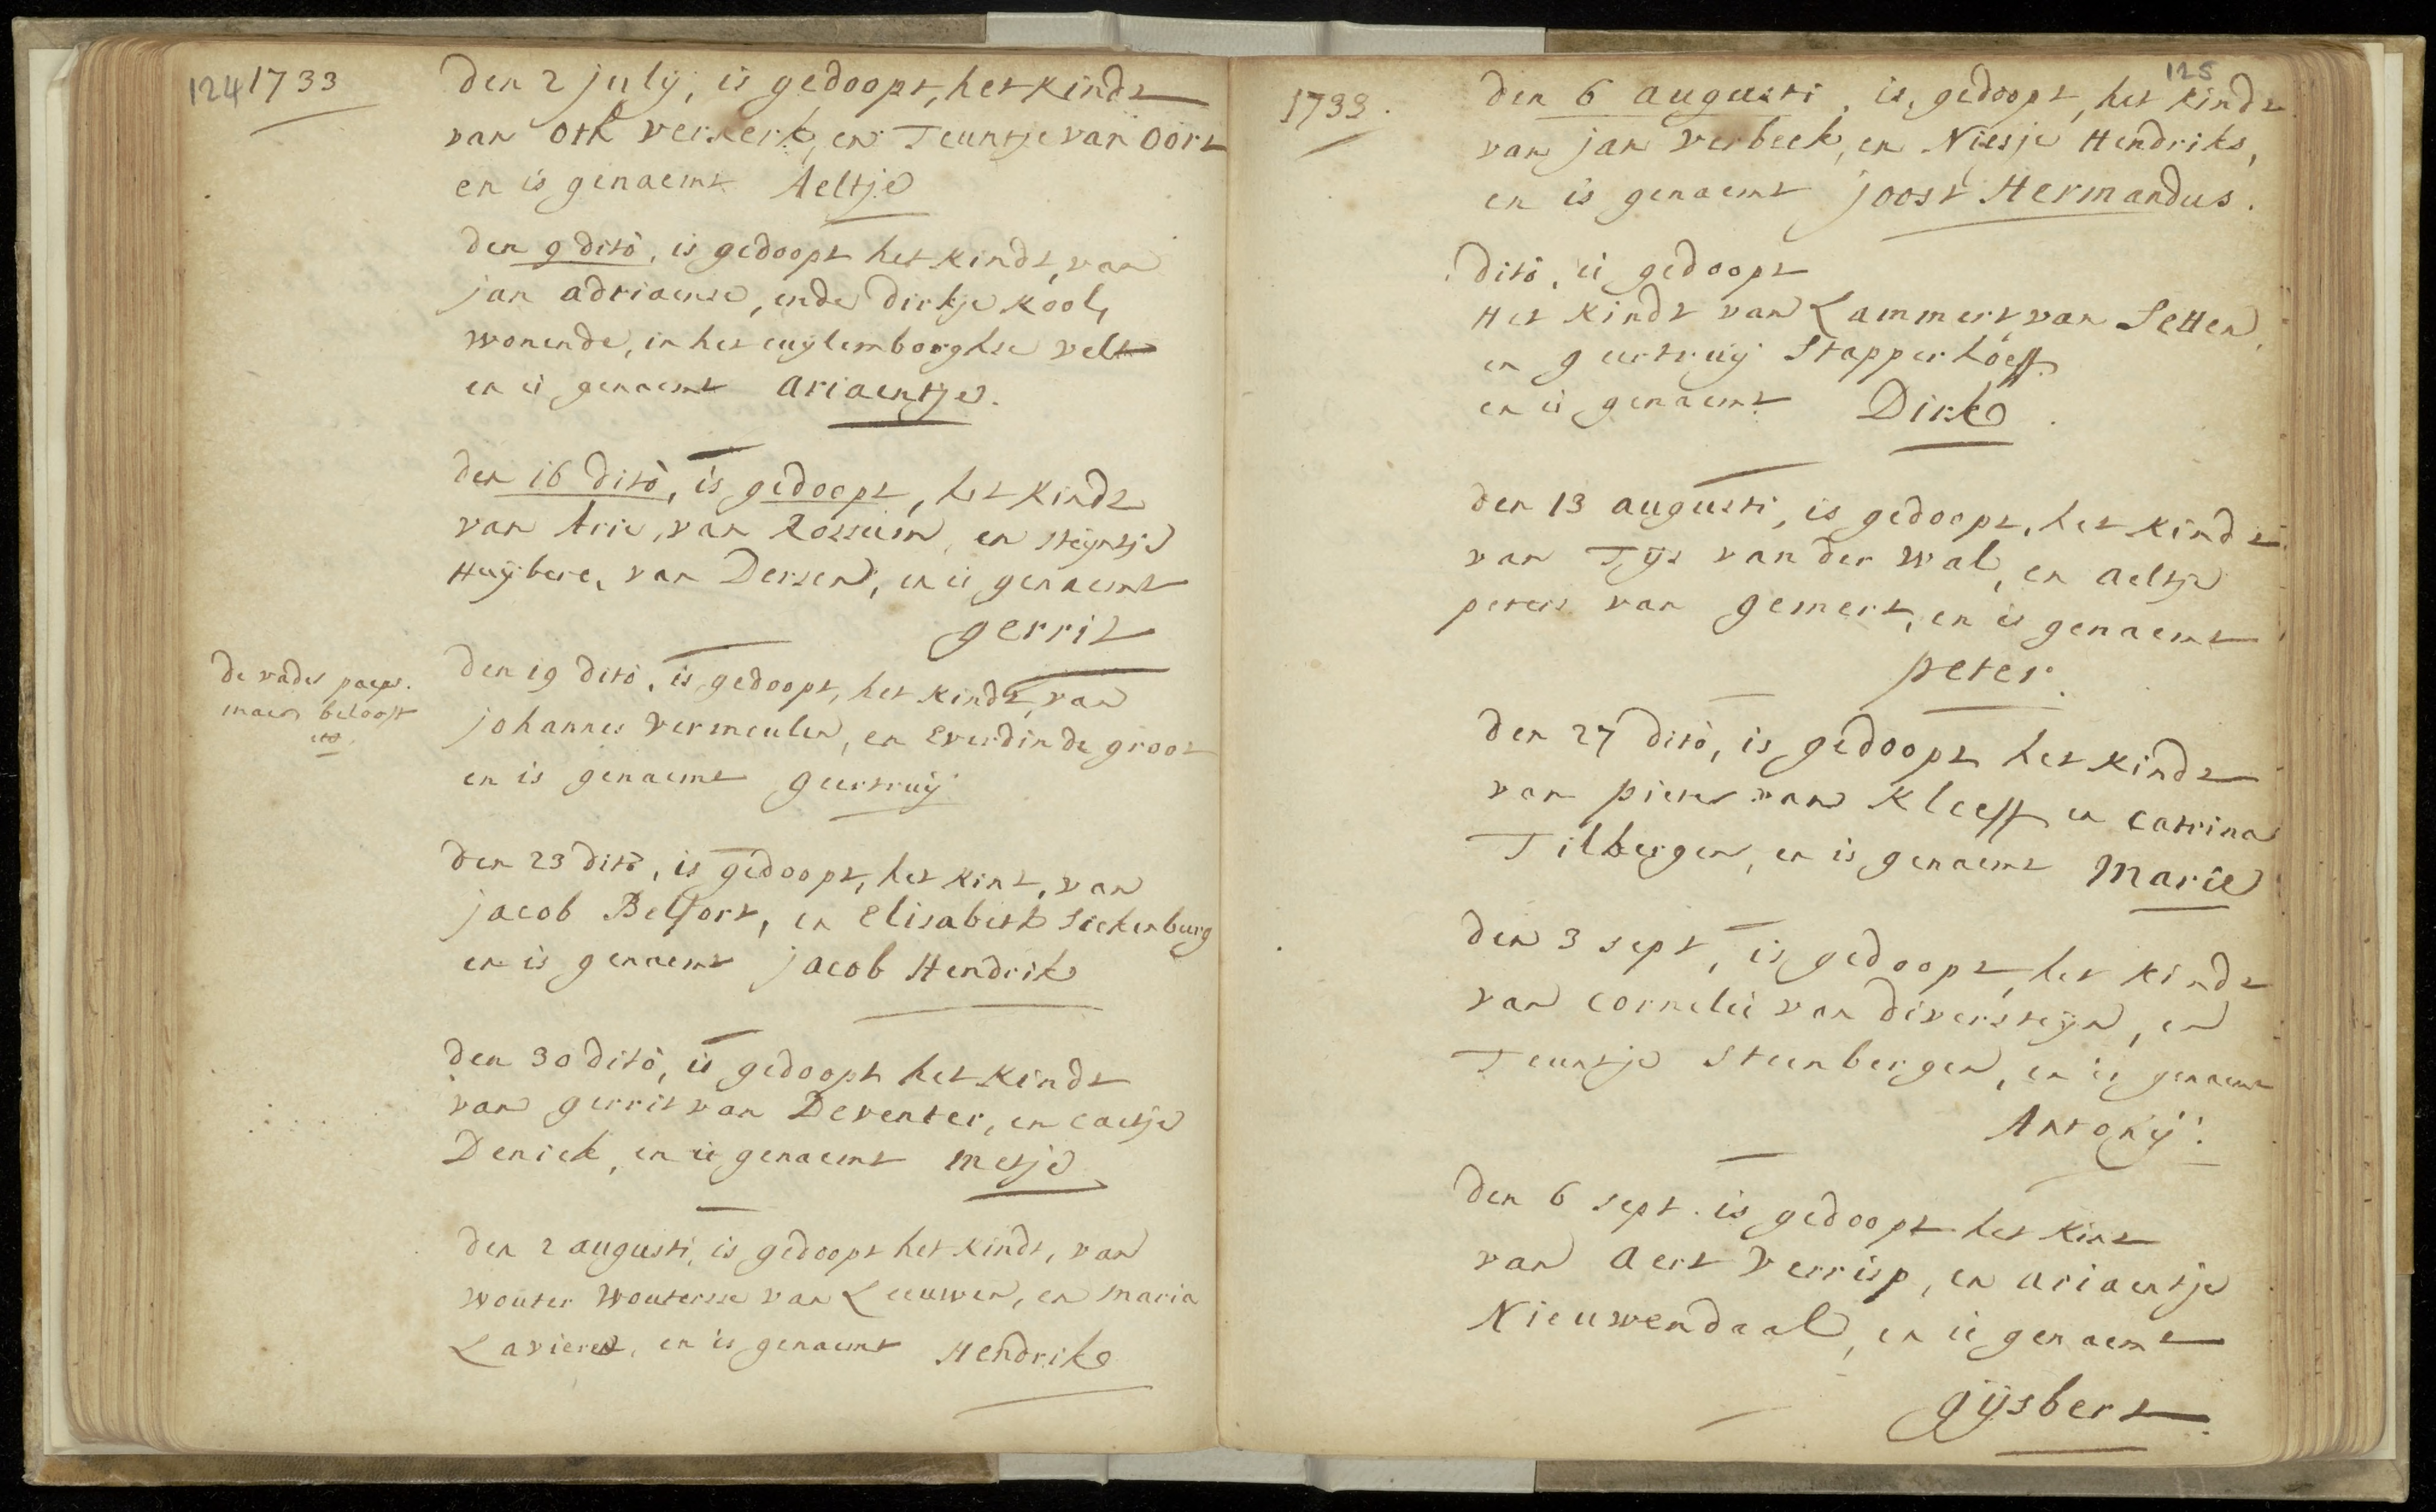 124 1733
den 2 july, is gedoopt, het kindt
van Oth verkerk, en Teuntje van Oort
en is genaemt Aeltje
den 9 dito, is gedoopt het kindt, van
jan adriaense, ende dirkje kool,
wonende, in het cuylemborghse velt
en is genaemt ariaentje.
den 16 dito, is gedoopt, het kindt
van Arie, van Rossum, en steyntje
Huybere, van Dersen, en is genaemt
gerrit
de vader paeps.
maer belooft
etc.
den 19 dito, is gedoopt, het kindt, van
johannes vermeulen, en Everdin de groot
en is genaemt geertruy
den 23 dito, is gedoopt, het kint, van
jacob Belfort, en Elisabeth Siekenburg
en is genaemt jacob Hendrik
den 30 dito, is gedoopt het kindt
van gerrit van Deventer, en caetje
Deniek, en is genaemt metje
den 2 augusti, is gedoopt het kindt, van
wouter woutersse van Leeuwen, en maria
Lavieren, en is genaemt Hendrik
125
1733.
den 6 augusti, is, gedoopt, het kindt
van jan verbeek, en Niesje Hendriks,
en is genaemt joost Hermandus.
dito, is gedoopt
Het kindt van Lammert, van Setten,
en geertruy Stapperhoeff.
en is genaemt Dirk.
den 13 augusti, is gedoopt, het kindt
van Tys van der wal, en aeltje
peters van gemert, en is genaemt
peter.
den 27 dito, is gedoopt het kindt
van pieter van Kleeff en catrina
Tilbergen, en is genaemt Marie
den 3 sept, is gedoopt, het kindt
van cornelis van diversteyn, en
Teuntje Steenbergen, en is genaemt
Antony.
den 6 sept. is gedoopt het kint
van aert verrisp, en ariaentje
Nieuwendaal, en is genaemt
gysbert.